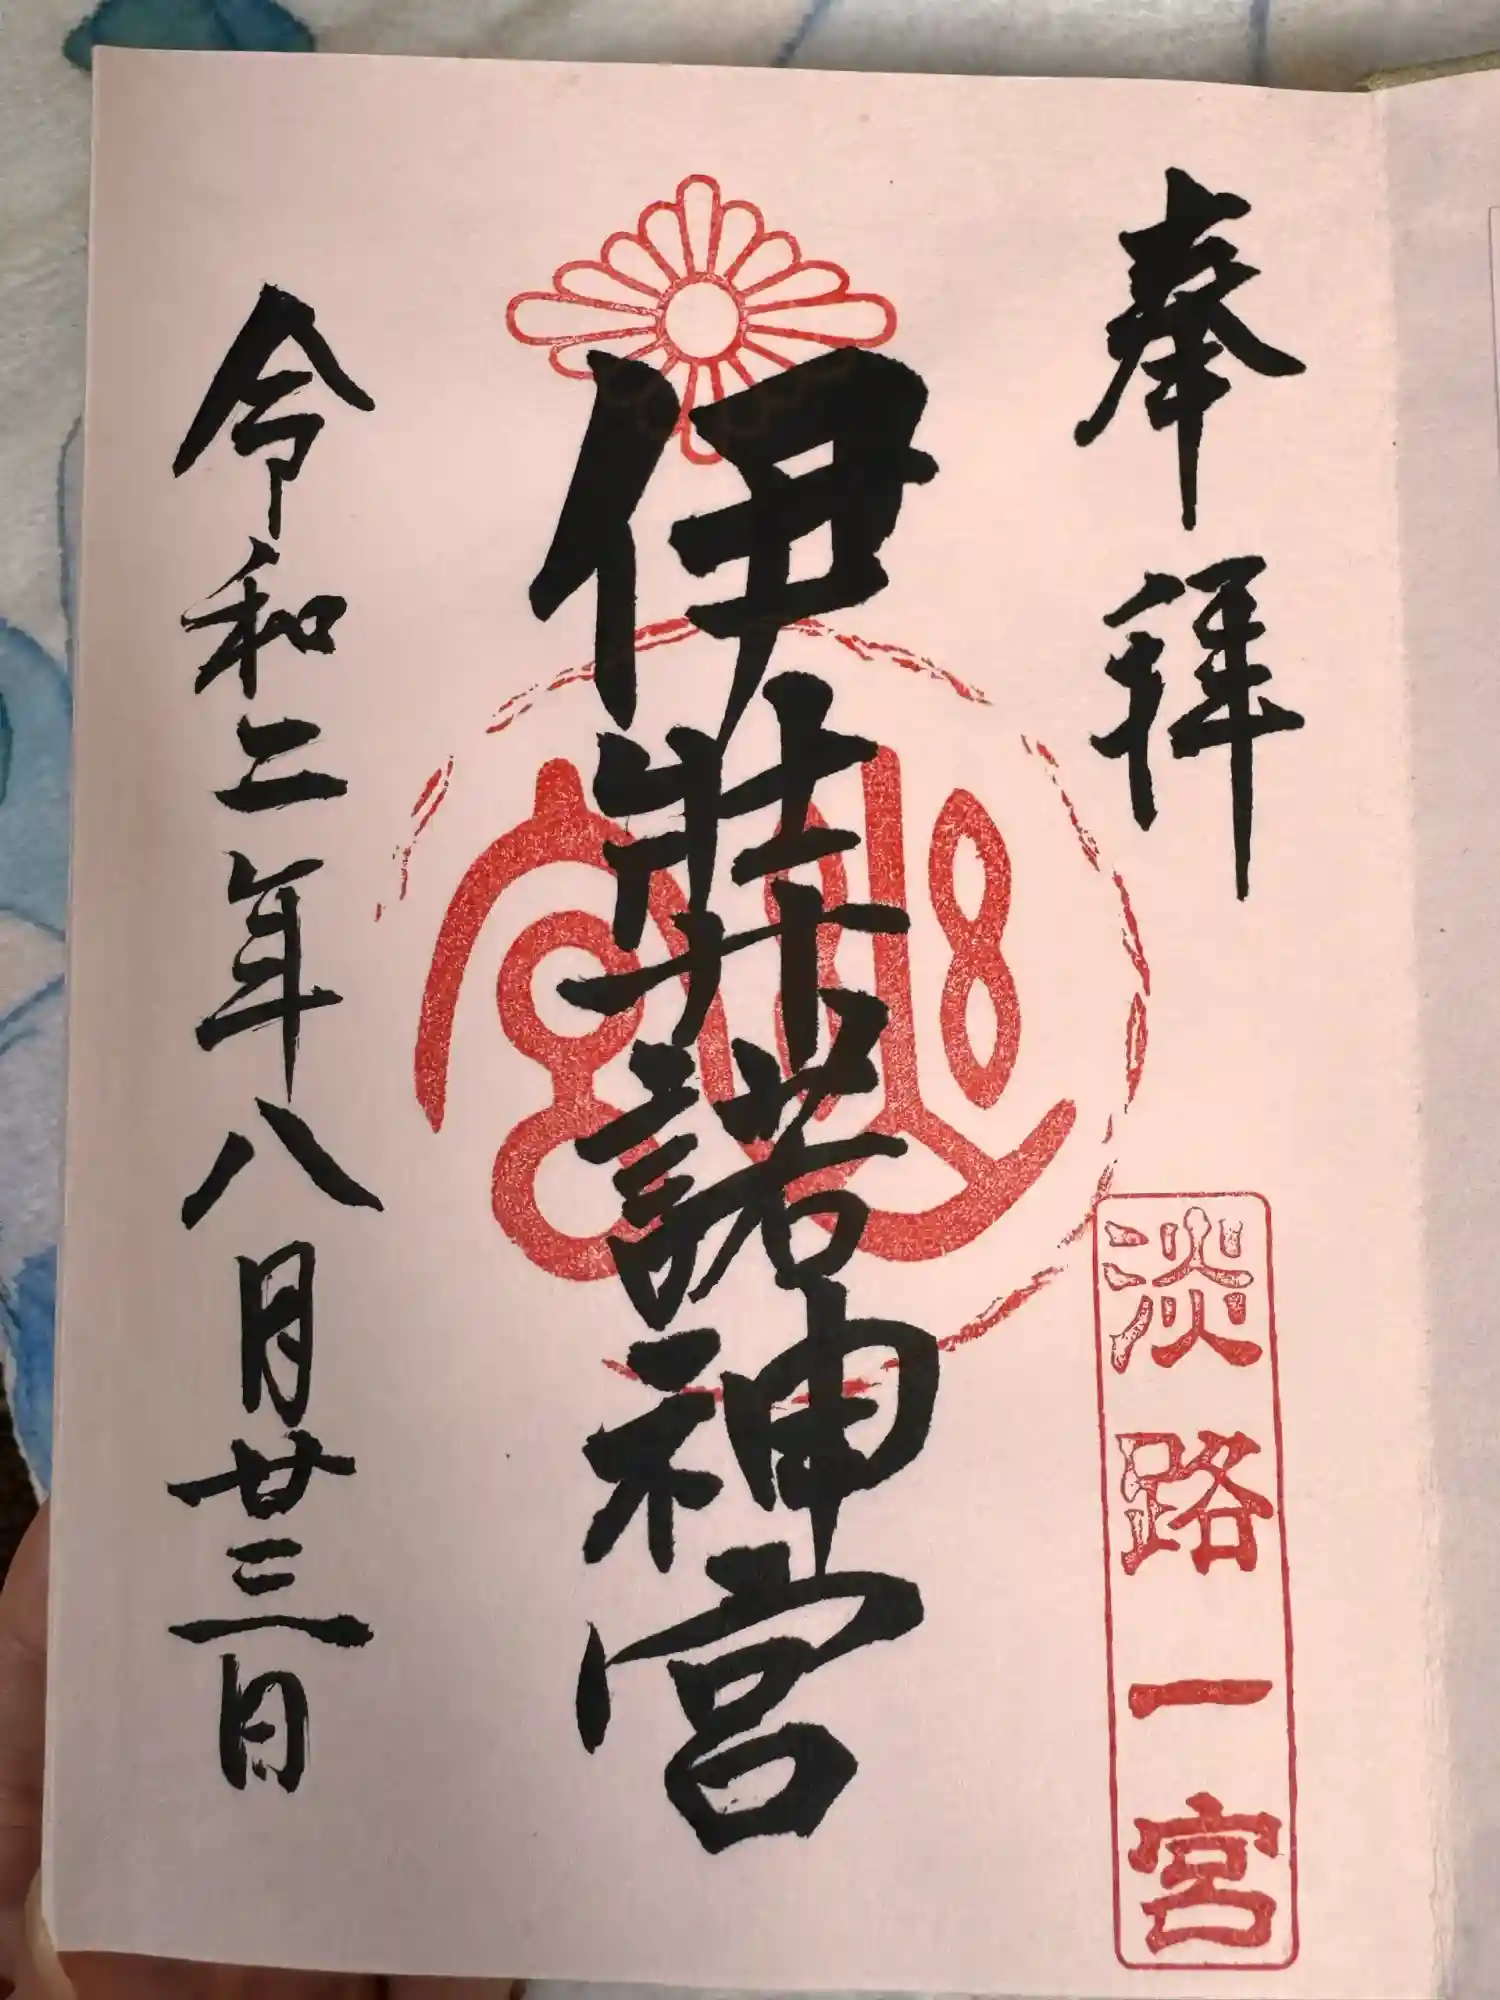 奉拝
淡路一宮
伊弉諾神宮
神宮
令和二年八月廿三日